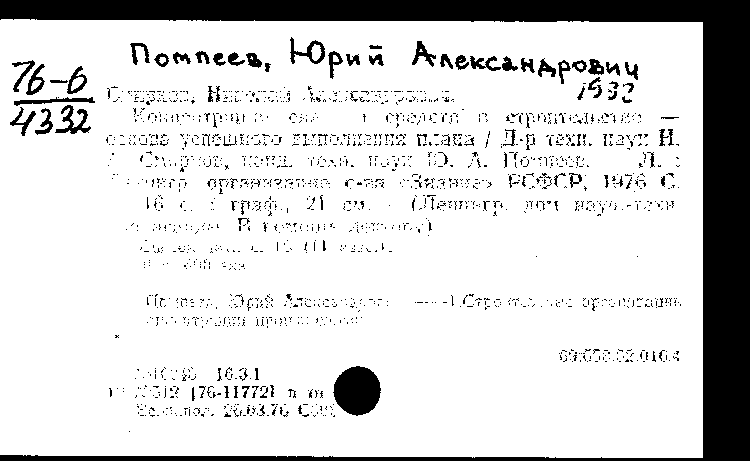 Помпеев, Юрий Александрович
1932
76-6
4332
Смирнов, Николай Александрович.
Концентрация сил и средств в строительстве —
основа успешного выполнения плана / Д-р техн. наук Н.
А. Смирнов, канд. техн. наук Ю. А. Помпеев. — Л. :
Ленингр. организация о-ва «Знание» РСФСР, 1976 С.
16 с. : граф., 21 см. — (Ленингр. дом науч.-техн.
В помощь
с. 16 (11 назв.).
Помпеев, Юрий Александрович — 1. Строительные организации
69:658.02.016.4
16.3.1
[76-11772] п
26.03.76